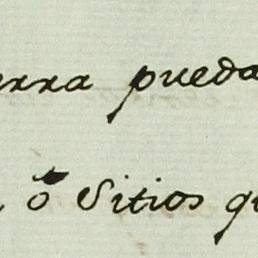 erra pueda
ó Sitios qu